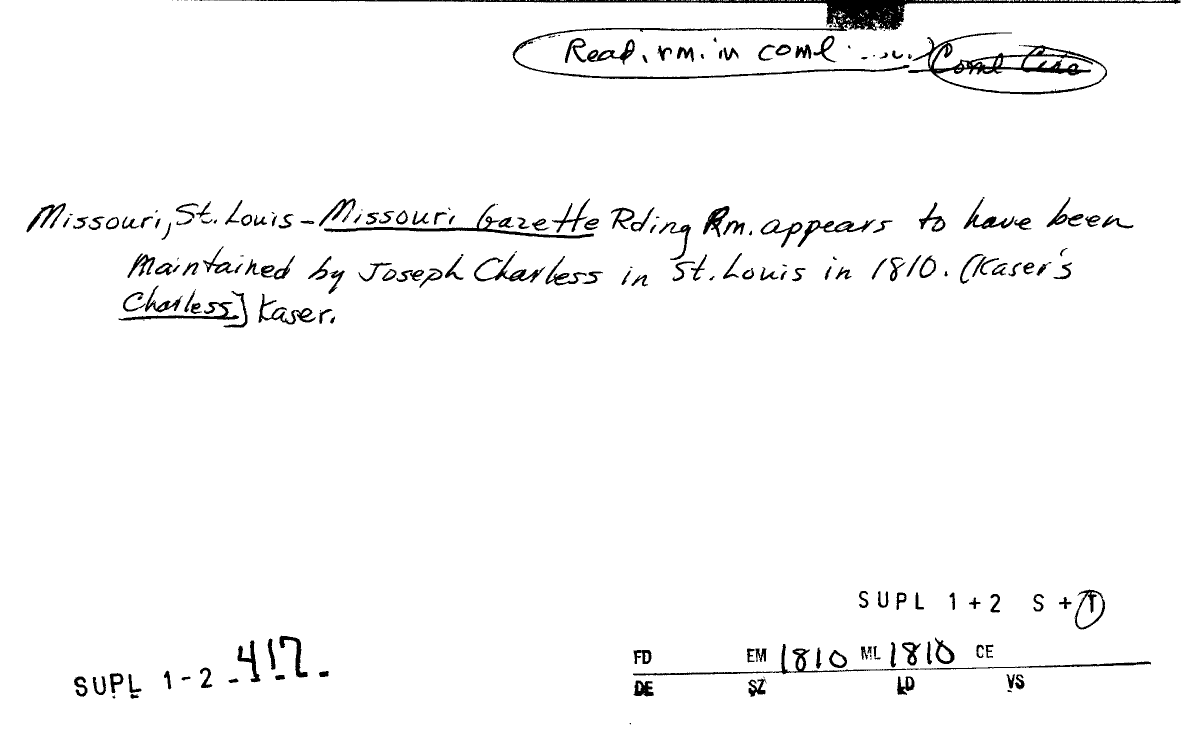 Read. rm. in coml Coml Circ
Missouri, St. Louis - Missouri Gazette Rding Rm. appears to have been
Maintained by Joseph Charless in St. Louis in 1810. (Kaser's
Charless] Kaser.
SUPL 1+2 S+T
SUPL 1-2 -417-
FD EM 1810 ML 1810 CE
DE SZ LD VS